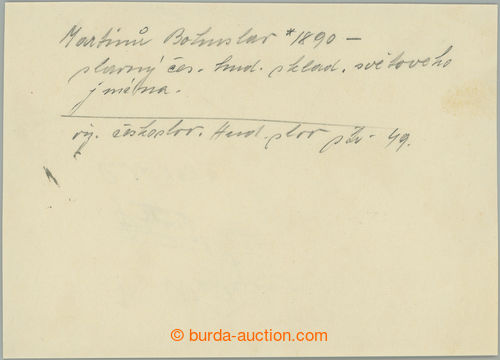 Martinů Bohuslav *1890 –
slavný čes. hud. sklad. světového
jména.
viz. českoslov. Hud. slov 49.
© burda-auction.com